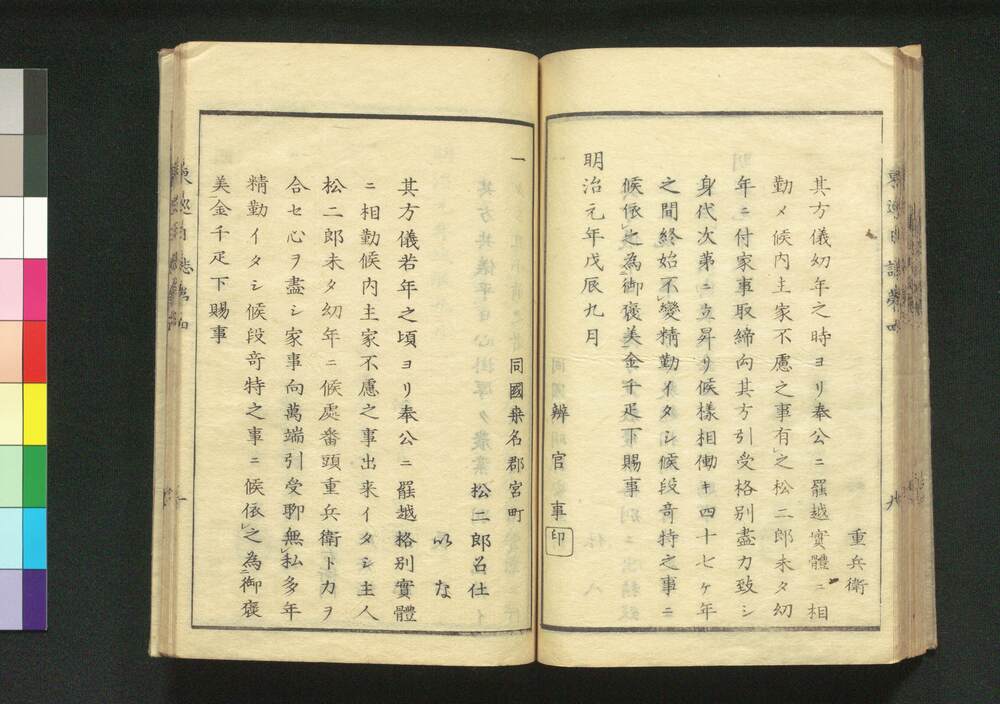 重兵衛
其方儀幼年之時ヨリ奉公ニ罷越實體ニ相
勤メ候内主家不慮之事有之松二郎未タ幼
年ニ付家事取締向其方引受格別盡力致シ
身代次第ニ立昇リ候樣相働キ四十七ケ年
之間終始不變精勤イタシ候段竒特之事ニ
候依之為御褒美金千疋下賜事
明治元年戊辰九月
辨官事印
一
同國桑名郡宮町
松二郎召仕
以な
其方儀若年之頃ヨリ奉公ニ罷越格別實體
ニ相勤候内主家不慮之事出来イタシ主人
松二郎未タ幼年ニ候處番頭重兵衛ト力ヲ
合セ心ヲ盡シ家事向萬端引受聊無私多年
精勤イタシ候段竒特之事ニ候依之為御褒
美金千疋下賜事